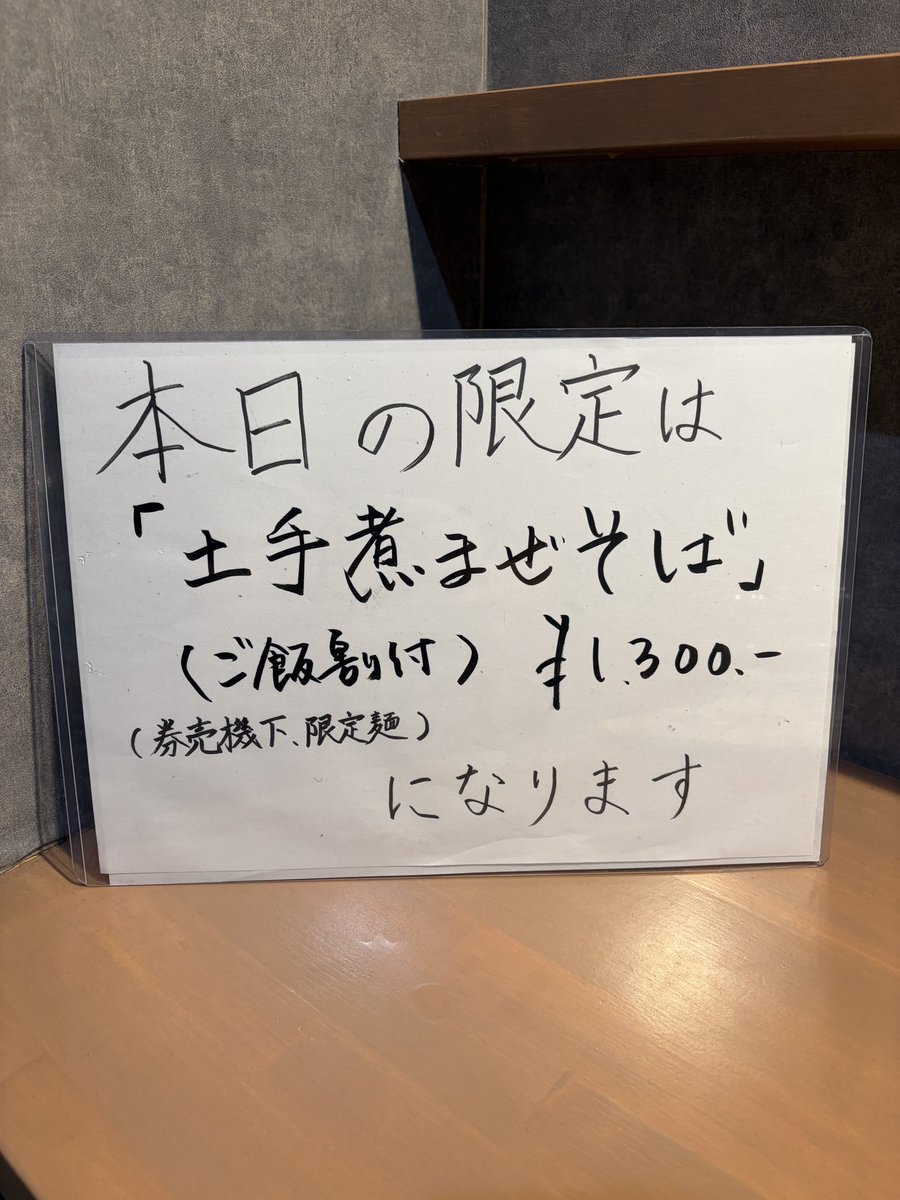 本日の限定は
「土手煮まぜそば」
(ご飯割り付) ¥1,300.-
(券売機下、限定麺)
になります